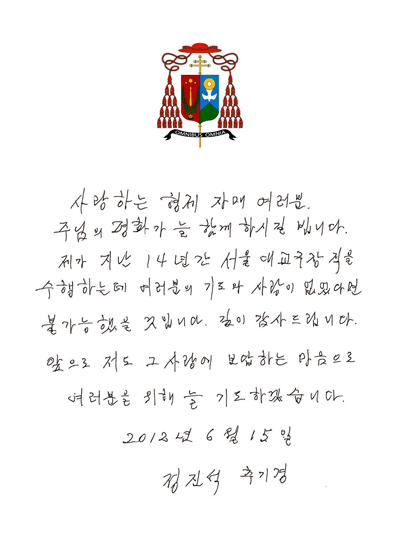 OMNIBUS OMNIA
사랑하는 형제 자매 여러분.
주님의 평화가 늘 함께 하시길 빕니다.
제가 지난 14년간 서울대교구장직을
수행하는데 여러분의 기도와 사랑이 없었다면
불가능했을 것입니다. 깊이 감사드립니다.
앞으로 저도 그 사랑에 보답하는 마음으로
여러분을 위해 늘 기도하겠습니다.
2012년 6월 15일
정진석 추기경